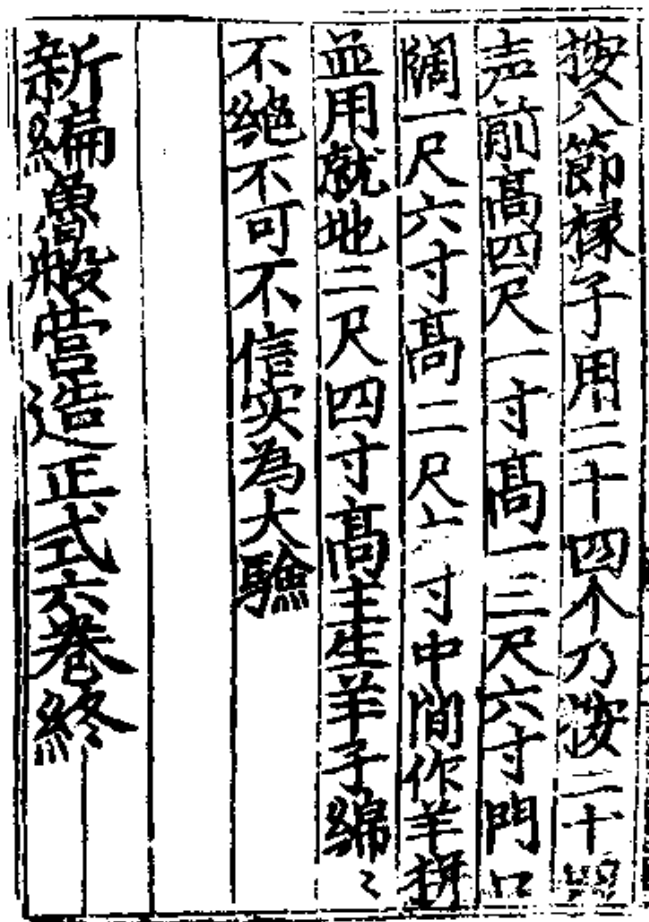 按八節椽子用二十四个乃按二十四
声前高四尺一寸高一三尺六寸門口
闊一尺六寸高二尺六寸中間作羊栟
並用就地二尺四寸高主生羊子綿〻
不絶不可不信实為大驗
新編魯般营造正式六巻終